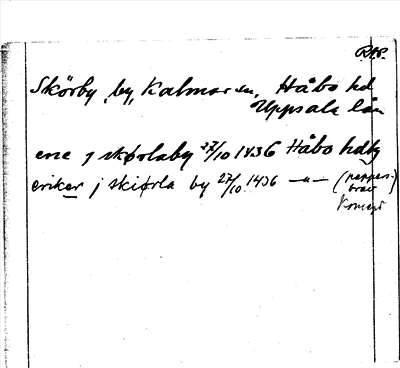 RAP.
Skörby, by, Kalmar sn, Håbo hd
Uppsala län
ene j skørlaby 27/10 1436 Håbo hdby
eriker j skiørla by 27/10 1436 —"— (pappers-
brev